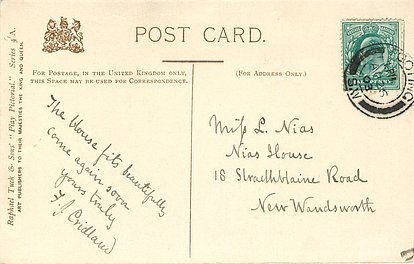 POST CARD.
FOR POSTAGE, IN THE UNITED KINGDOM ONLY,
THIS SPACE MAY BE USED FOR CORRESPONDENCE
(FOR ADDRESS ONLY.)
Raphael Tuck & Sons' "Play Pictorial" Series
ART PUBLISHERS TO THEIR MAJESTIES THE KING AND QUEEN.
The blouse fits beautifully
come again soon
yours truly
F. J. Cridland
Miss L. Nias
Nias House
18 Strathblaine Road
New Wandsworth
TOOTING